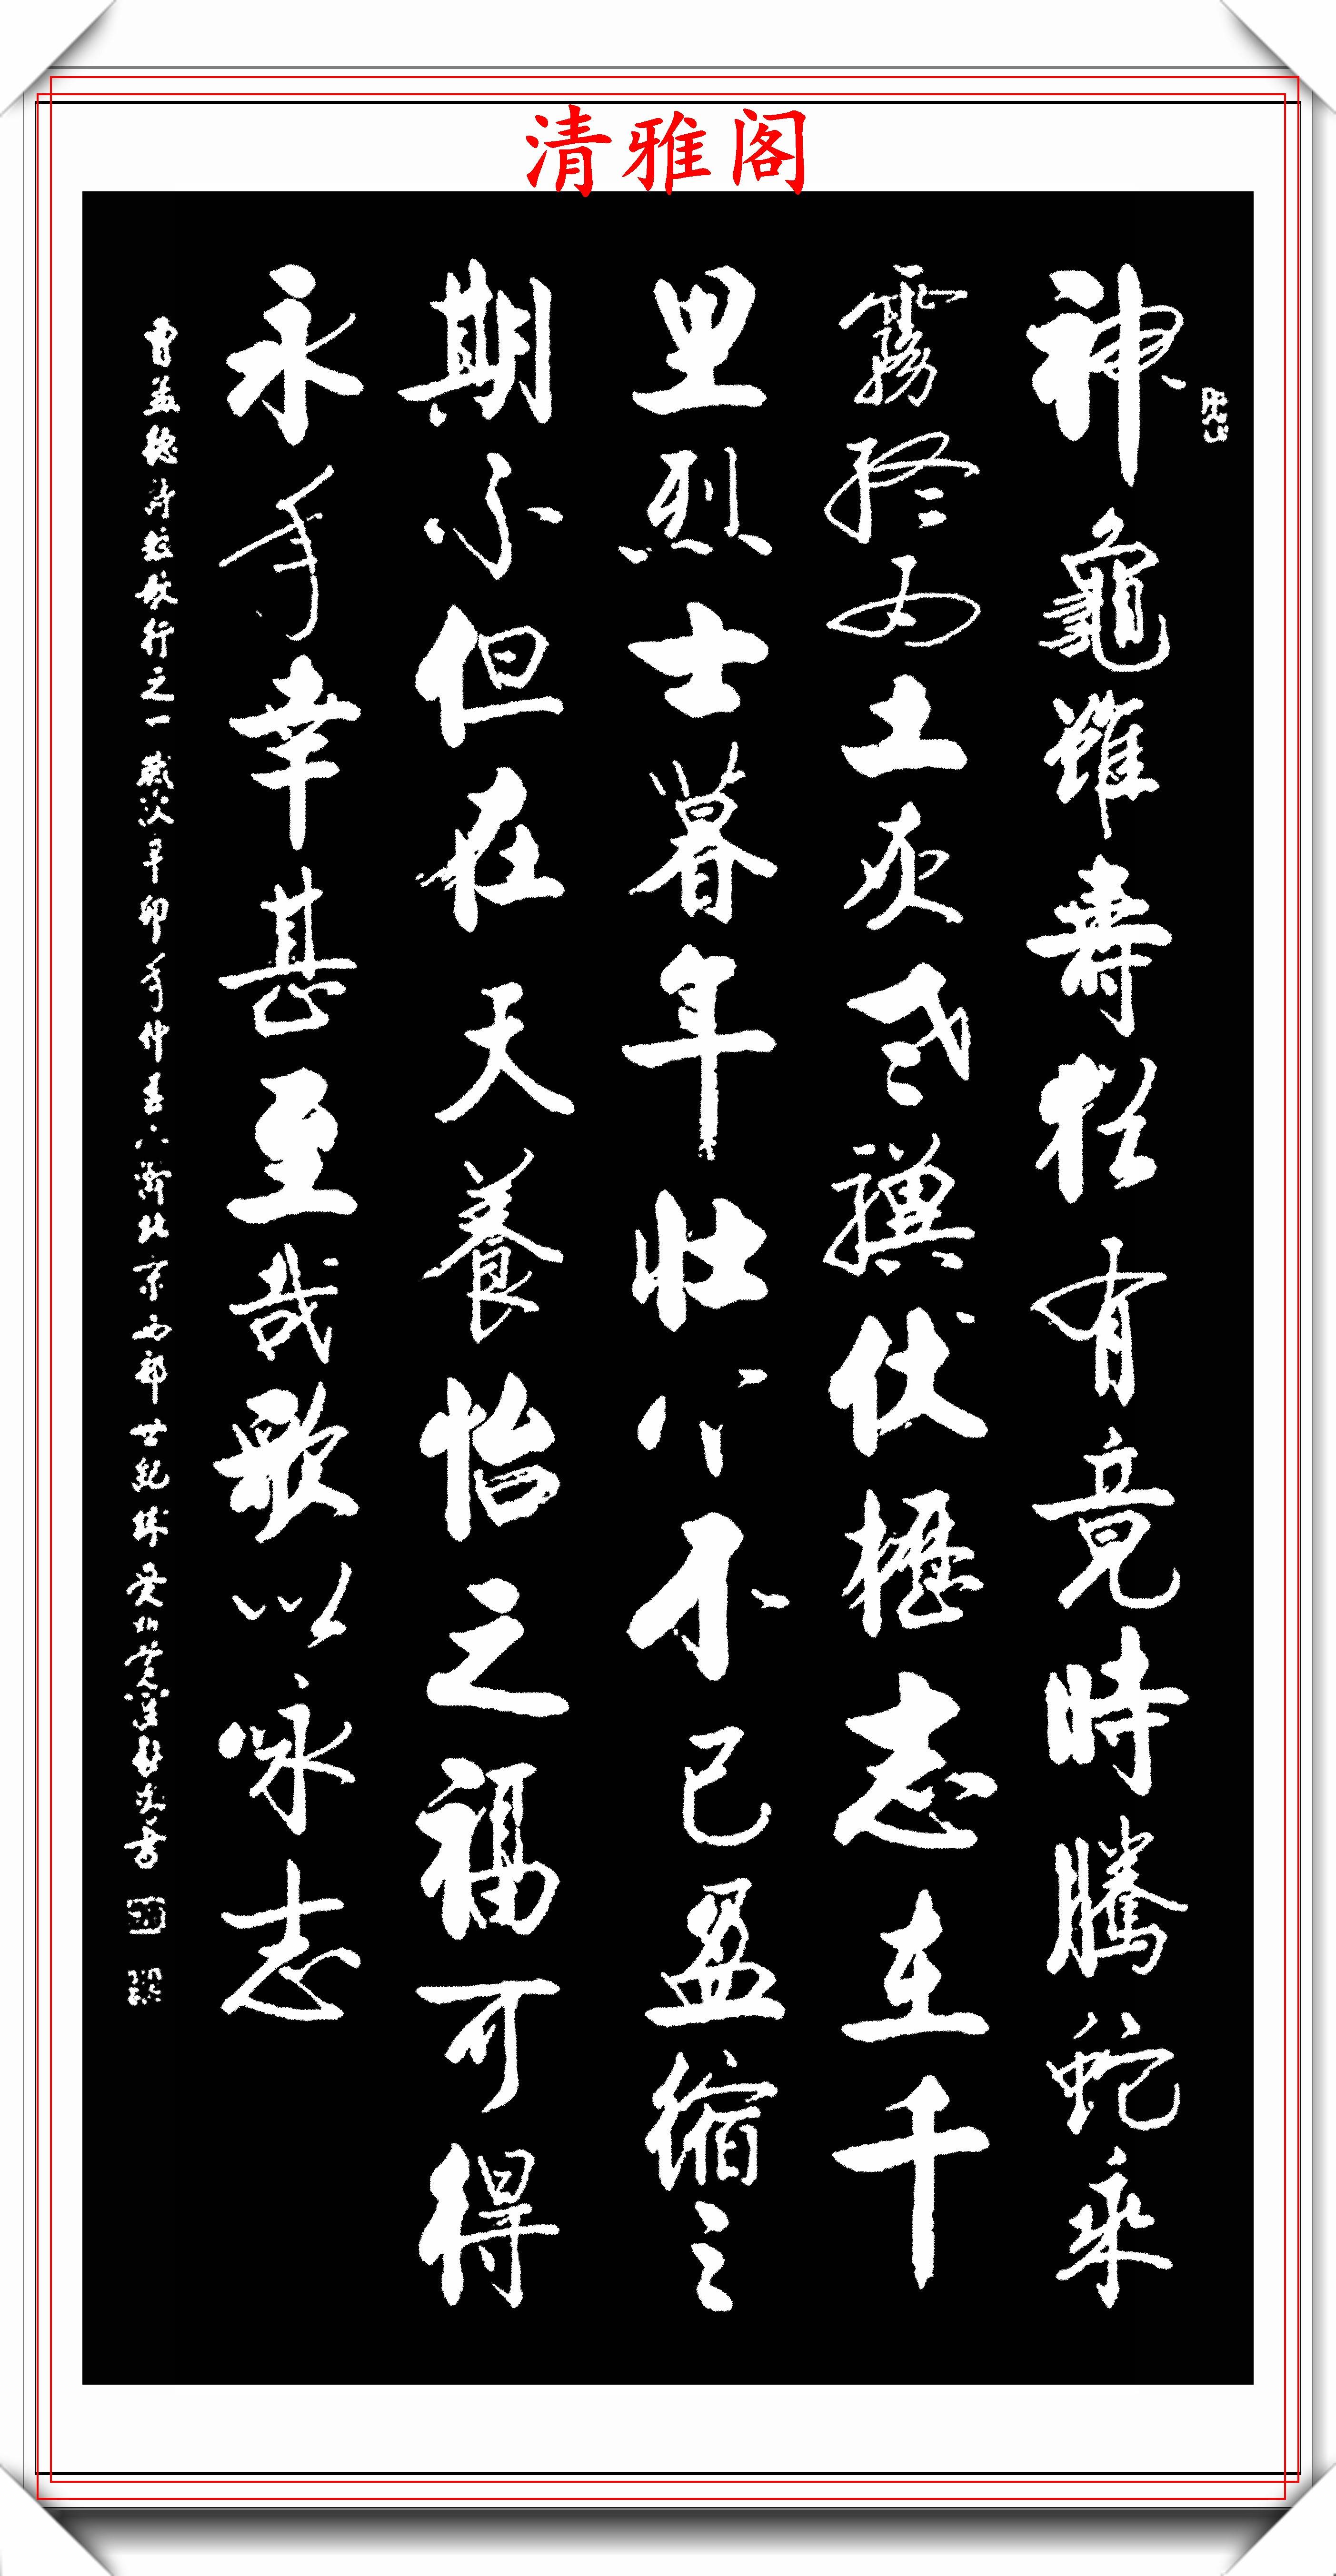 清雅阁
神龜雖壽猶有竟時騰蛇乘
霧終為土灰老驥伏櫪志在千
里烈士暮年壯心不已盈縮之
期不但在天養怡之福可得
永年幸甚至哉歌以咏志
曹孟德詩短歌行之一歲次辛卯年仲春於北京西郊世紀城書